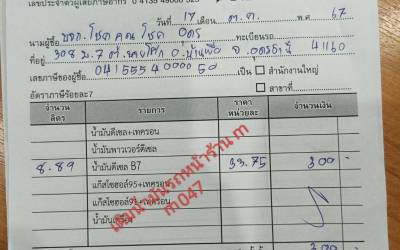 เลขประจำตัวผู้เสียภาษีอากร 0 4135 49000 525
วันที่ 17 เดือน ต.ค. พ.ศ 67
นามผู้ซื้อ บจก. โชคคูณโชค อุดร ทะเบียนรถ
ที่อยู่ 308 ม.7 ต. อ.บ้านผือ จ.อุดรธานี 41160
เลขภาษีของผู้ซื้อ 0415554000050 เป็น สำนักงานใหญ่
อัตราภาษีร้อยละ7 สาขาที่
จำนวนลิตร รายการ ราคาหน่วยละ จำนวนเงิน
น้ำมันดีเซล+เทครอน
น้ำมันพาวเวอร์ดีเซล
8.89 น้ำมันดีเซล B7 33.75 300 -
แก๊สโซฮอล์95+เทครอน
แก๊สโซฮอล์91+เทครอน
เติมน้ำมันรถหน้าร้าน m
m047
300 -